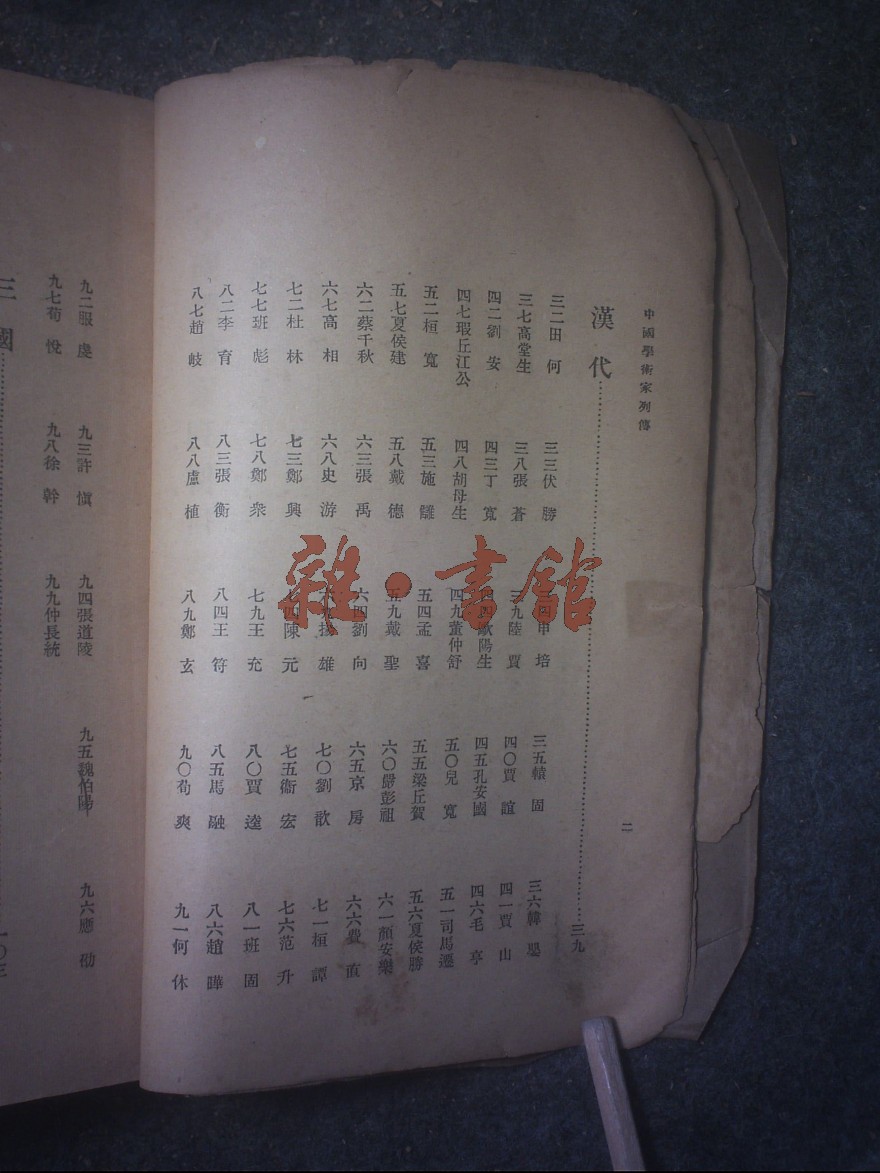 中國學術家列傳
二
漢代……三九
三二田何 三三伏勝 申培 三五轅固 三六韓嬰
三七高堂生 三八張蒼 三九陸賈 四〇賈誼 四一賈山
四二劉安 四三丁寬 歐陽生 四五孔安國 四六毛亨
四七瑕丘江公 四八胡母生 四九董仲舒 五〇兒寬 五一司馬遷
五二桓寬 五三施讎 五四孟喜 五五梁丘賀 五六夏侯勝
五七夏侯建 五八戴德 五九戴聖 六〇嚴彭祖 六一顏安樂
六二蔡千秋 六三張禹 六四劉向 六五京房 六六費直
六七高相 六八史游 揚雄 七〇劉歆 七一桓譚
七二杜林 七三鄭興 七四陳元 七五衞宏 七六范升
七七班彪 七八鄭衆 七九王充 八〇賈逵 八一班固
八二李育 八三張衡 八四王符 八五馬融 八六趙曄
八七趙岐 八八盧植 八九鄭玄 九〇荀爽 九一何休
九二服虔 九三許愼 九四張道陵 九五魏伯陽 九六應劭
九七荀悅 九八徐幹 九九仲長統
三國……一〇三
雜·書館